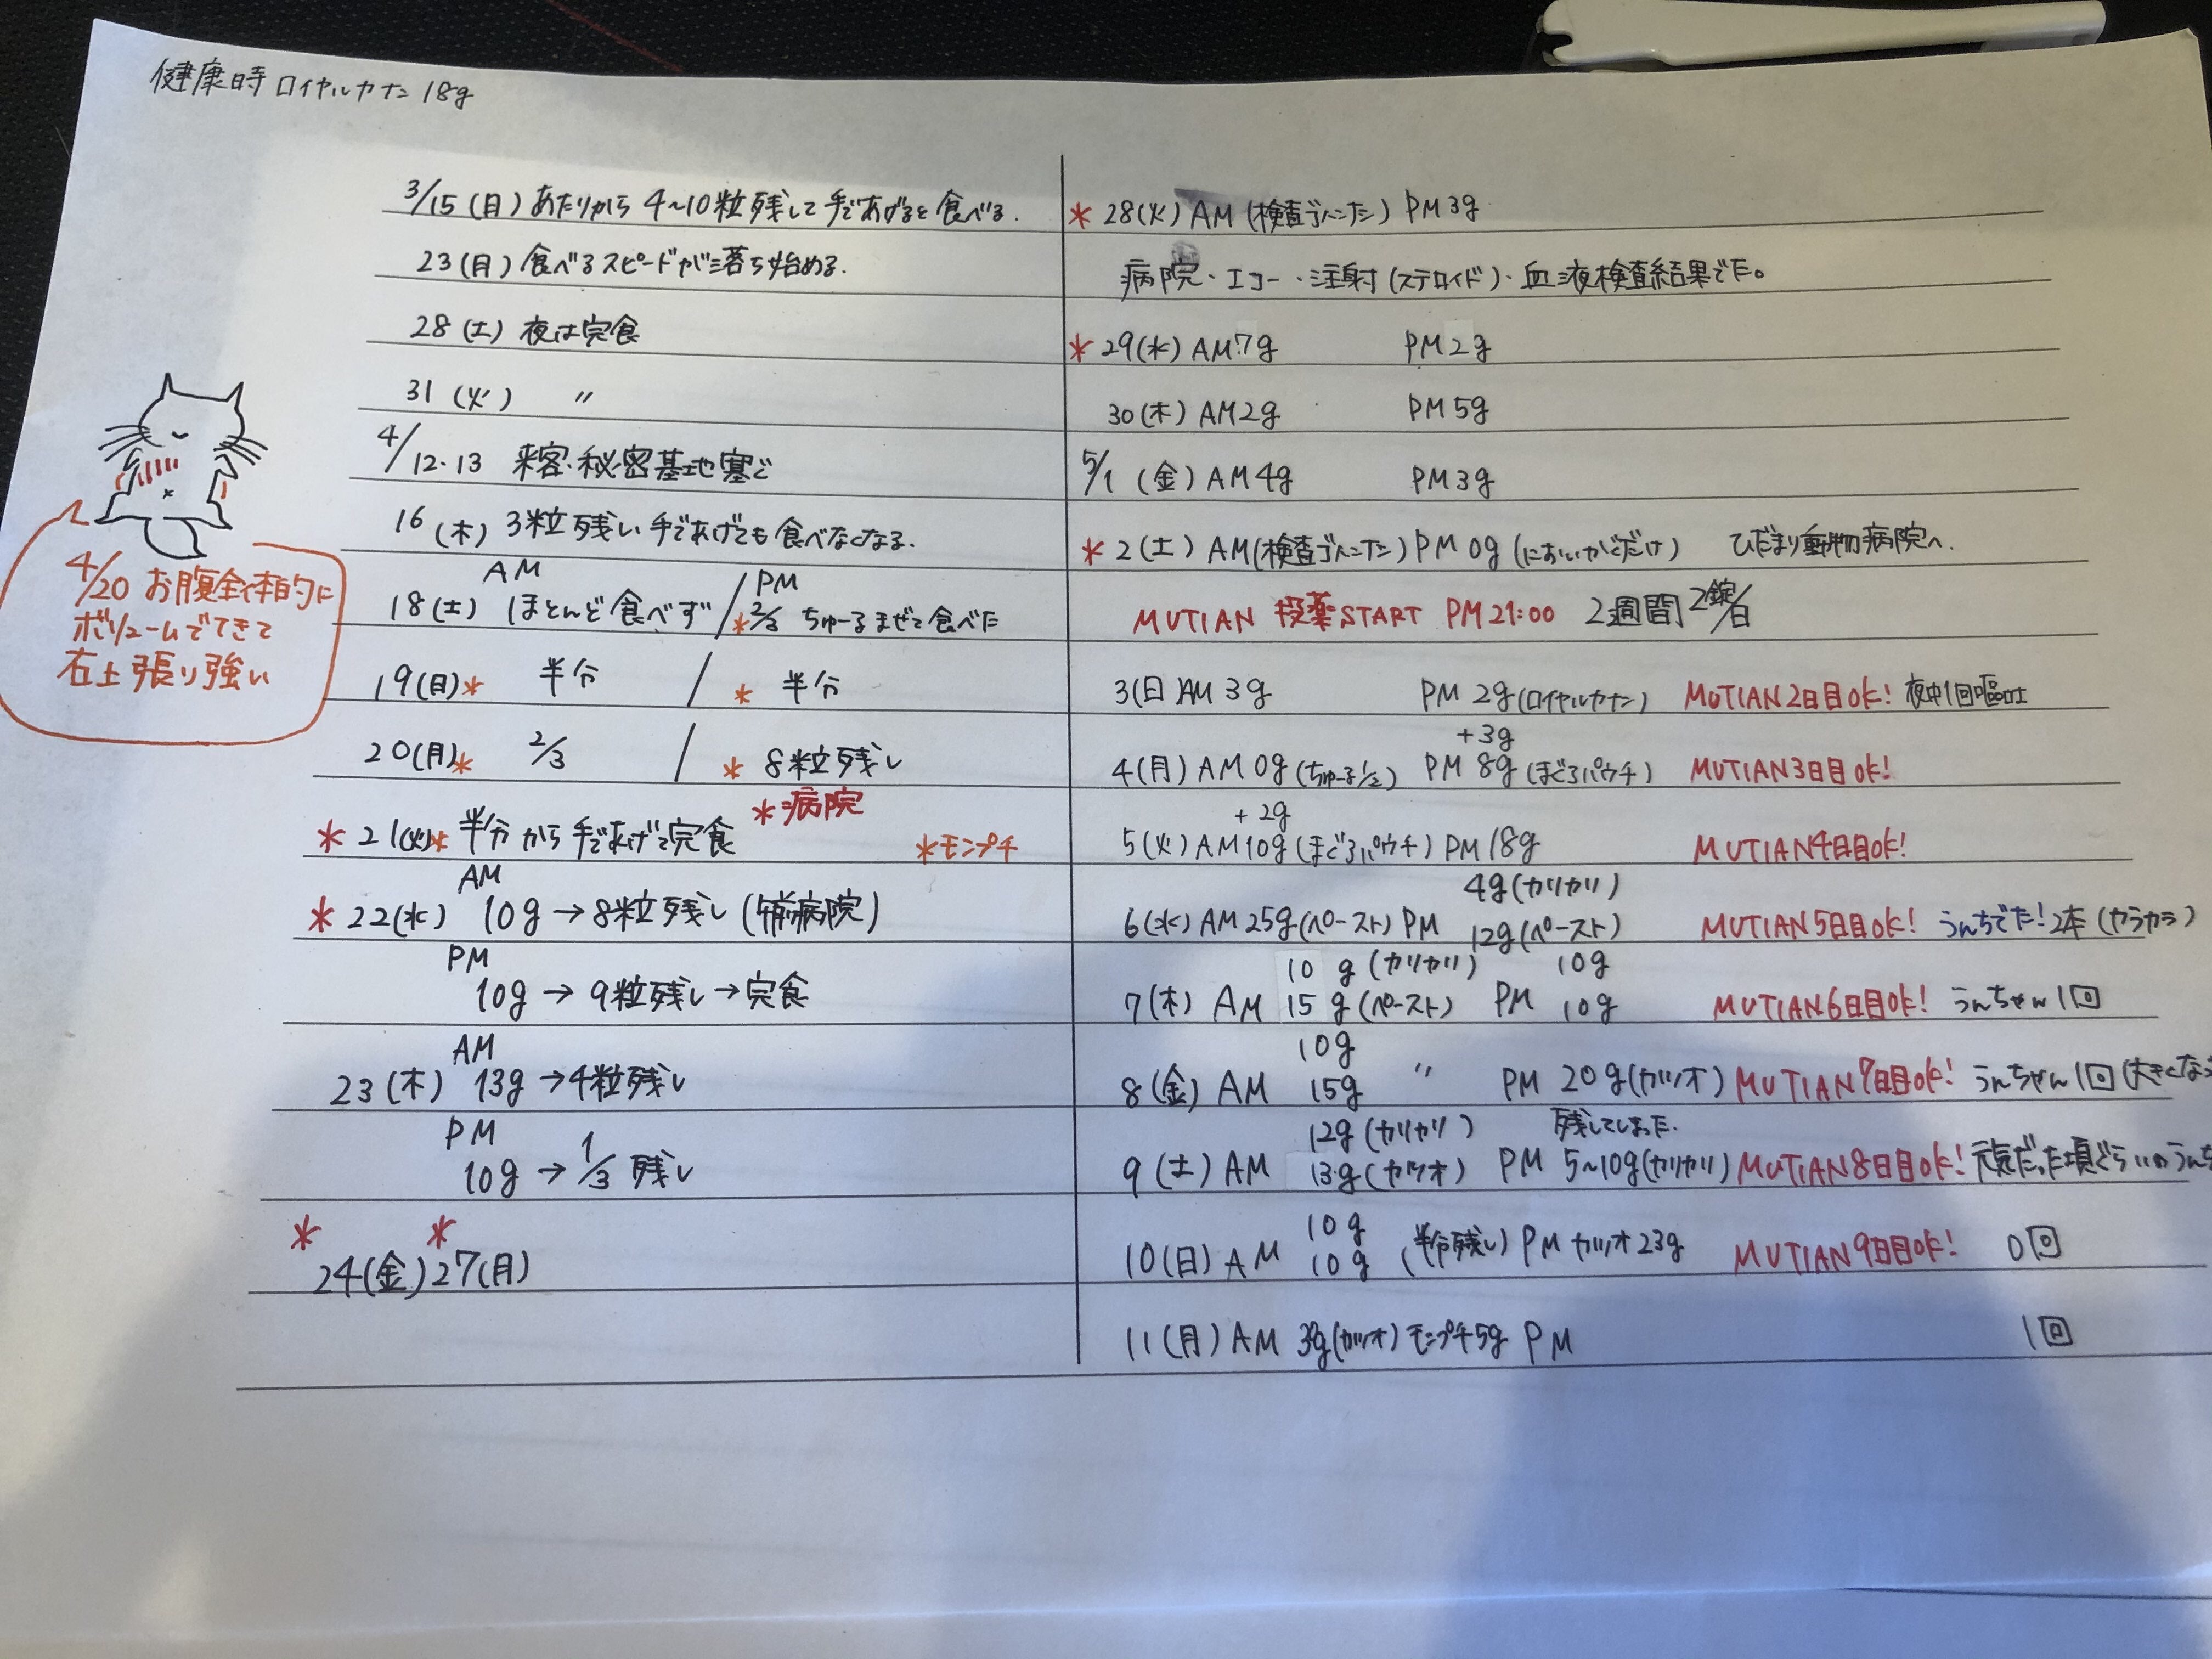 健康時 ロイヤルカナン 18g
3/15(月)あたりから 4~10粒残して手であげると食べる.
23(月)食べるスピードが落ち始める.
28(土) 夜は完食
31(火) 〃
4/12.13 来客・秘密基地塞ぐ
16(木) 3粒残し 手であげても食べなくなる.
AM PM
18(土) ほとんど食べず / *2/3 ちゅーるまぜて食べた
19(月)* 半分 / * 半分
20(月)* 2/3 / * 8粒残し
*病院
* 21(火)* 半分から手であげて完食 *モンプチ
AM
* 22(水) 10g→8粒残し(午前病院)
PM
10g→9粒残し→完食
AM
23(木) 13g→4粒残し
PM
10g→1/3 残し
* *
24(金)27(月)
4/20 お腹全体的に
ボリュームでてきて
右上張り強い
* 28(火) AM(検査ゴハンナシ) PM3g
病院・エコー・注射(ステロイド)・血液検査結果でた。
* 29(水) AM7g PM2g
30(木) AM2g PM5g
5/1(金) AM4g PM3g
* 2(土) AM(検査ゴハンナシ) PM 0g(においかぐだけ) ひだまり動物病院へ.
MUTIAN 投薬START PM21:00 2週間 2錠/日
3(日)AM 3g PM 2g(ロイヤルカナン) MUTIAN2日目OK! 夜中1回嘔吐
+3g
4(月) AM 0g(ちゅーる1/2) PM 8g(まぐろパウチ) MUTIAN3日目OK!
+2g
5(火) AM10g(まぐろパウチ) PM 18g MUTIAN4日目OK!
4g(カリカリ)
6(水) AM25g(ペースト) PM 12g(ペースト) MUTIAN5日目OK! うんちでた!2本(カラカラ)
10g(カリカリ) 10g
7(木) AM 15g(ペースト) PM 10g MUTIAN6日目OK! うんちゃん1回
10g
8(金) AM 15g 〃 PM 20g(カツオ) MUTIAN7日目OK! うんちゃん1回(大きくなっ
12g(カリカリ) 残してしまった.
9(土) AM 13g(カツオ) PM 5~10g(カリカリ) MUTIAN8日目OK! 元気だった頃ぐらいのうんち
10g
10(日) AM 10g (半分残し) PM カツオ23g MUTIAN9日目OK! 0回
11(月) AM (カツオ)モンプチ5g PM 1回